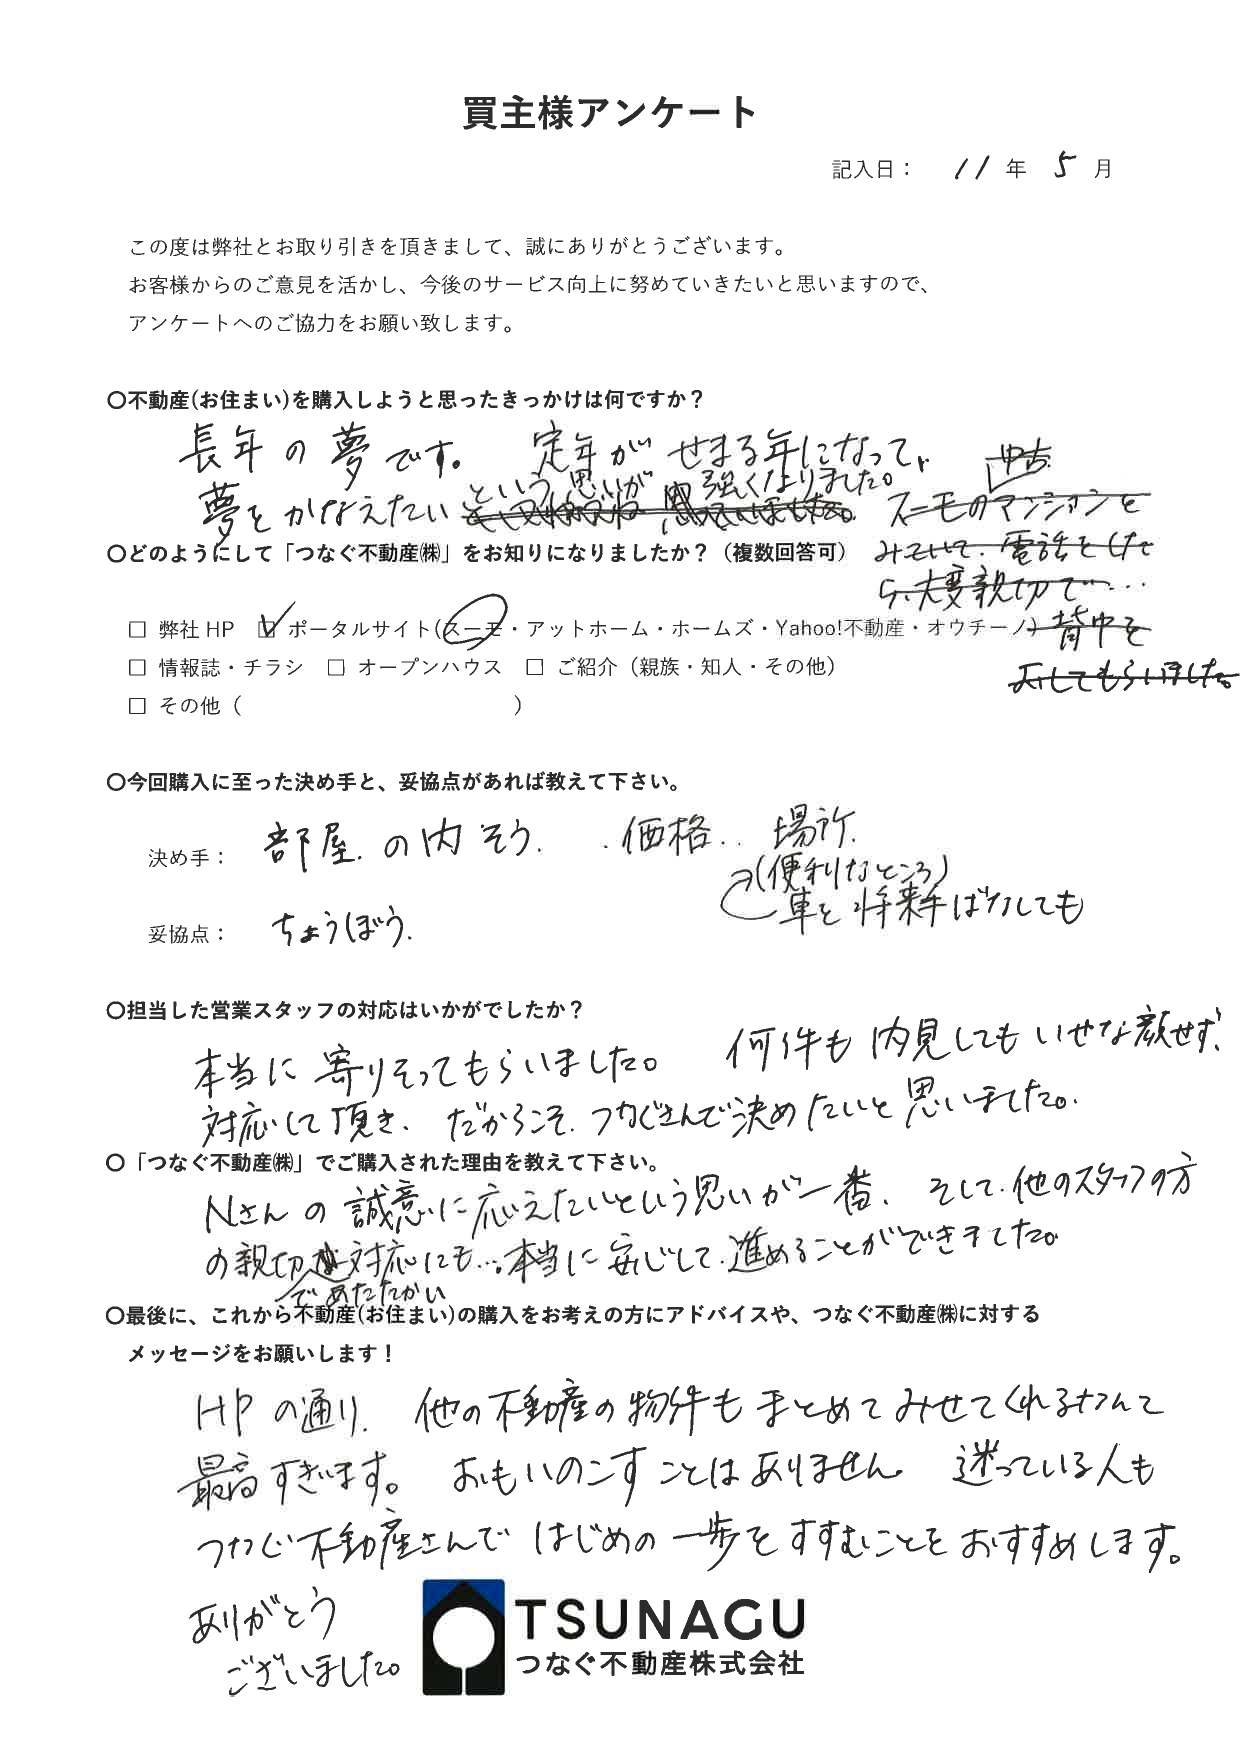 買主様アンケート
記入日： 11 年 5 月
この度は弊社とお取り引きを頂きまして、誠にありがとうございます。
お客様からのご意見を活かし、今後のサービス向上に努めていきたいと思いますので、
アンケートへのご協力をお願い致します。
〇不動産(お住まい)を購入しようと思ったきっかけは何ですか？
長年の夢です。 定年がせまる年になって、
夢をかなえたい という思いが 強くなりました。
中古
スーモのマンションを
みていて、電話をした
ら、大変親切で…
背中を
おしてもらいました。
〇どのようにして「つなぐ不動産㈱」をお知りになりましたか？（複数回答可）
□ 弊社 HP ☑ ポータルサイト(スーモ・アットホーム・ホームズ・Yahoo!不動産・オウチーノ)
□ 情報誌・チラシ □ オープンハウス □ ご紹介（親族・知人・その他）
□ その他（ ）
〇今回購入に至った決め手と、妥協点があれば教えて下さい。
決め手： 部屋の内そう. 価格.. 場所.
(便利なところ)
車を将来手ばなしても
妥協点： ちょうぼう.
〇担当した営業スタッフの対応はいかがでしたか？
本当に寄りそってもらいました。 何件も内見してもいせな顔せず、
対応して頂き、だからこそ、つなぐさんで決めたいと思いました。
〇「つなぐ不動産㈱」でご購入された理由を教えて下さい。
Nさんの誠意に応えたいという思いが一番、そして、他のスタッフの方
の親切であたたかい対応にも…本当に安じして進めることができました。
〇最後に、これから不動産(お住まい)の購入をお考えの方にアドバイスや、つなぐ不動産㈱に対する
メッセージをお願いします！
HPの通り、他の不動産の物件もまとめてみせてくれるなんて
最高すぎます。 おもいのこすことはありません 迷っている人も
つなぐ不動産さんで はじめの一歩をすすむことをおすすめします。
ありがとう
ございました。
TSUNAGU
つなぐ不動産株式会社